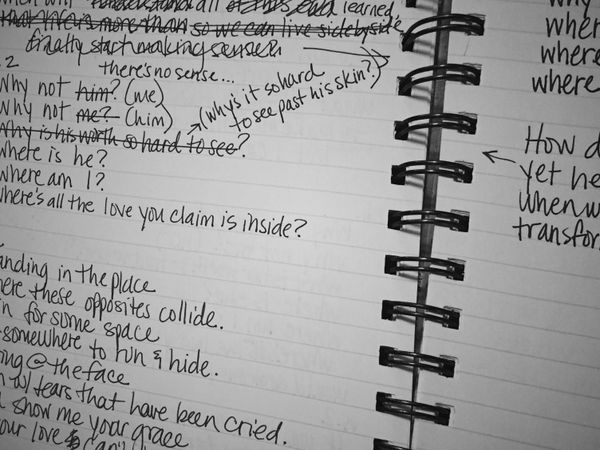 learned
that life's more than so we can live side by side
finally start making sense?
there's no sense...
2
Why not him? (me)
Why not me? (him)
(why's it so hard
to see past his skin?)
Why is his worth so hard to see?
where is he?
where am I?
where's all the love you claim is inside?
anding in the place
here these opposites collide.
n for some space
somewhere to run & hide.
ing @ the face
n w/ tears that have been cried.
show me your grace
our love
Why
where
where
where
How d
yet he
when w
transfor